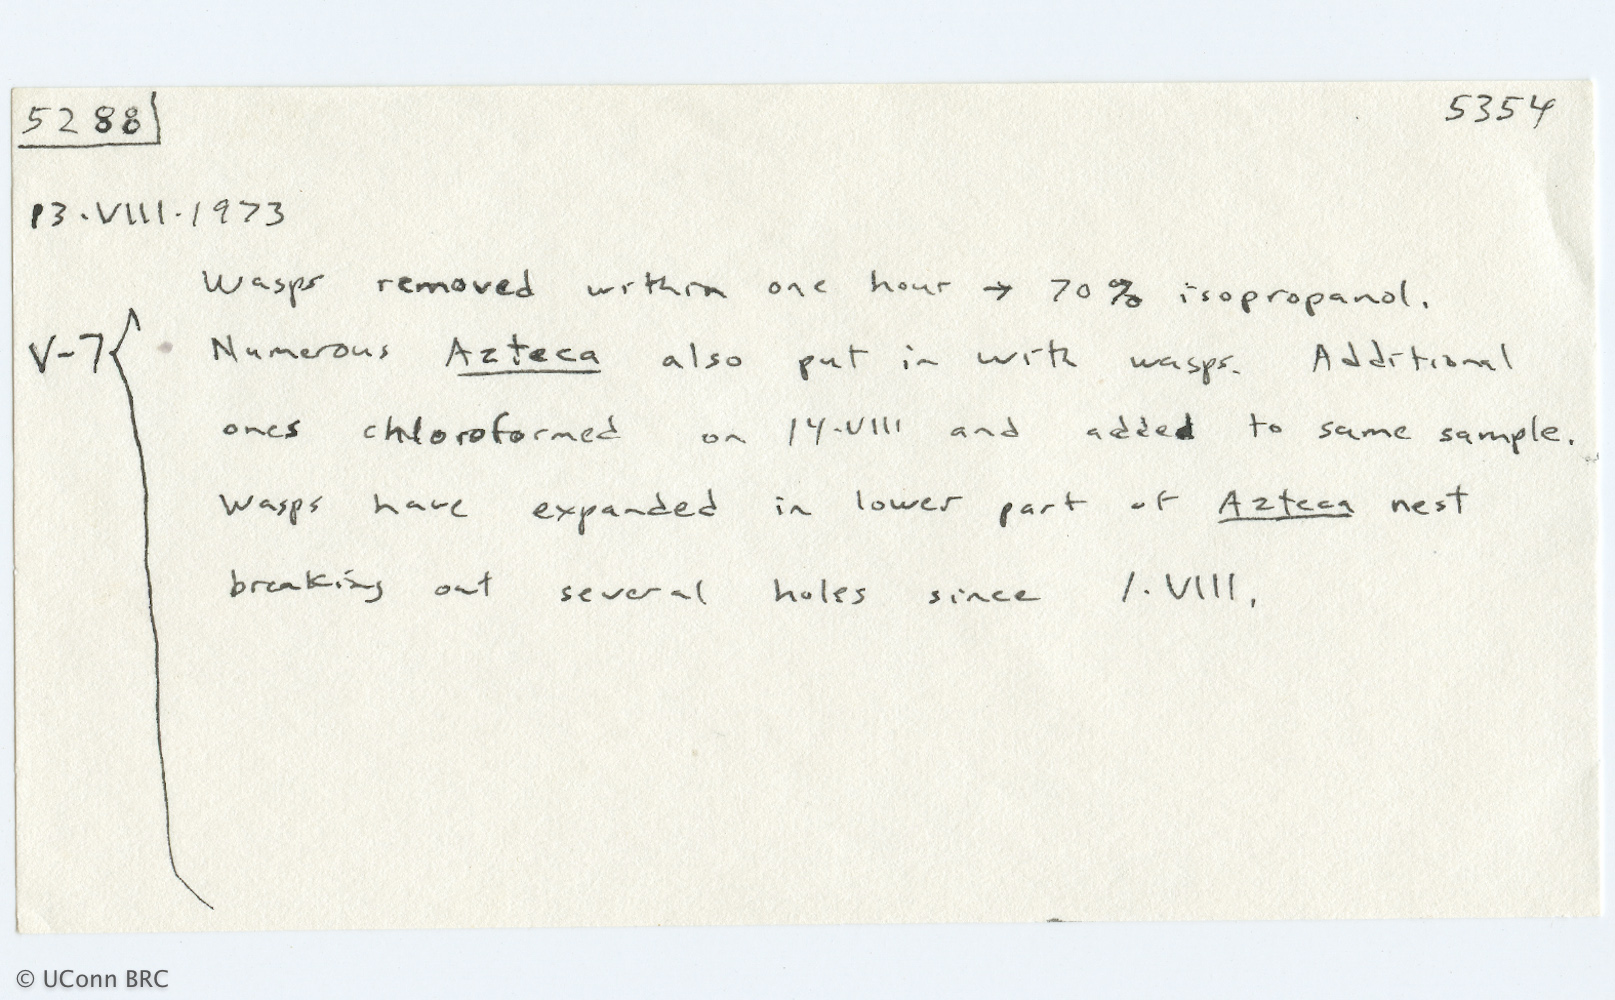 5288
5354
13.VIII.1973
Wasps removed within one hour → 70% isopropanol.
V-7 { Numerous Azteca also put in with wasps. Additional
ones chloroformed on 14.VIII and added to same sample.
Wasps have expanded in lower part of Azteca nest
breaking out several holes since 1.VIII.
© UConn BRC